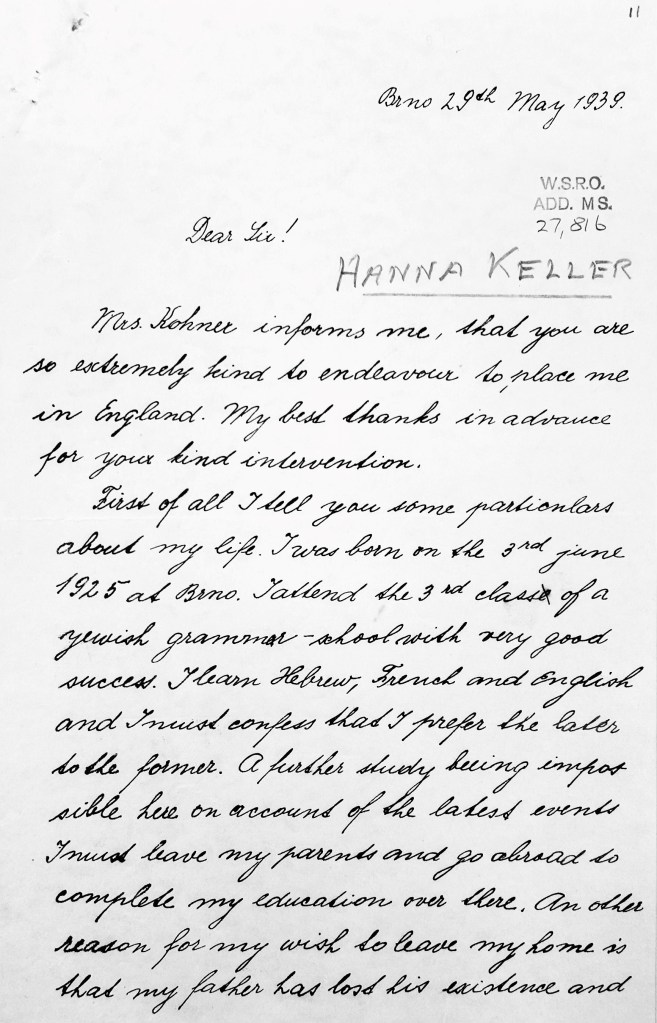 11
Brno 29th May 1939.
W.S.R.O.
ADD. MS.
27,816
Dear Sir!
HANNA KELLER
Mrs. Kohner informs me, that you are
so extremely kind to endeavour to place me
in England. My best thanks in advance
for your kind intervention.
First of all I tell you some particulars
about my life. I was born on the 3rd june
1925 at Brno. I attend the 3rd class of a
yewish grammar-school with very good
success. I learn Hebrew, French and English
and I must confess that I prefer the later
to the former. A further study beeing impos
sible here on account of the latest events
I must leave my parents and go abroad to
complete my education over there. An other
reason for my wish to leave my home is
that my father has lost his existence and